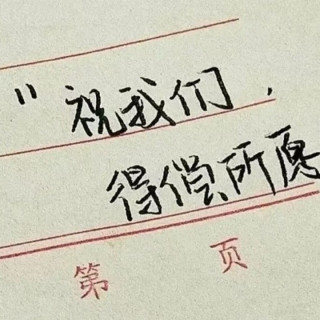 "祝我们,
得偿所愿
第 页